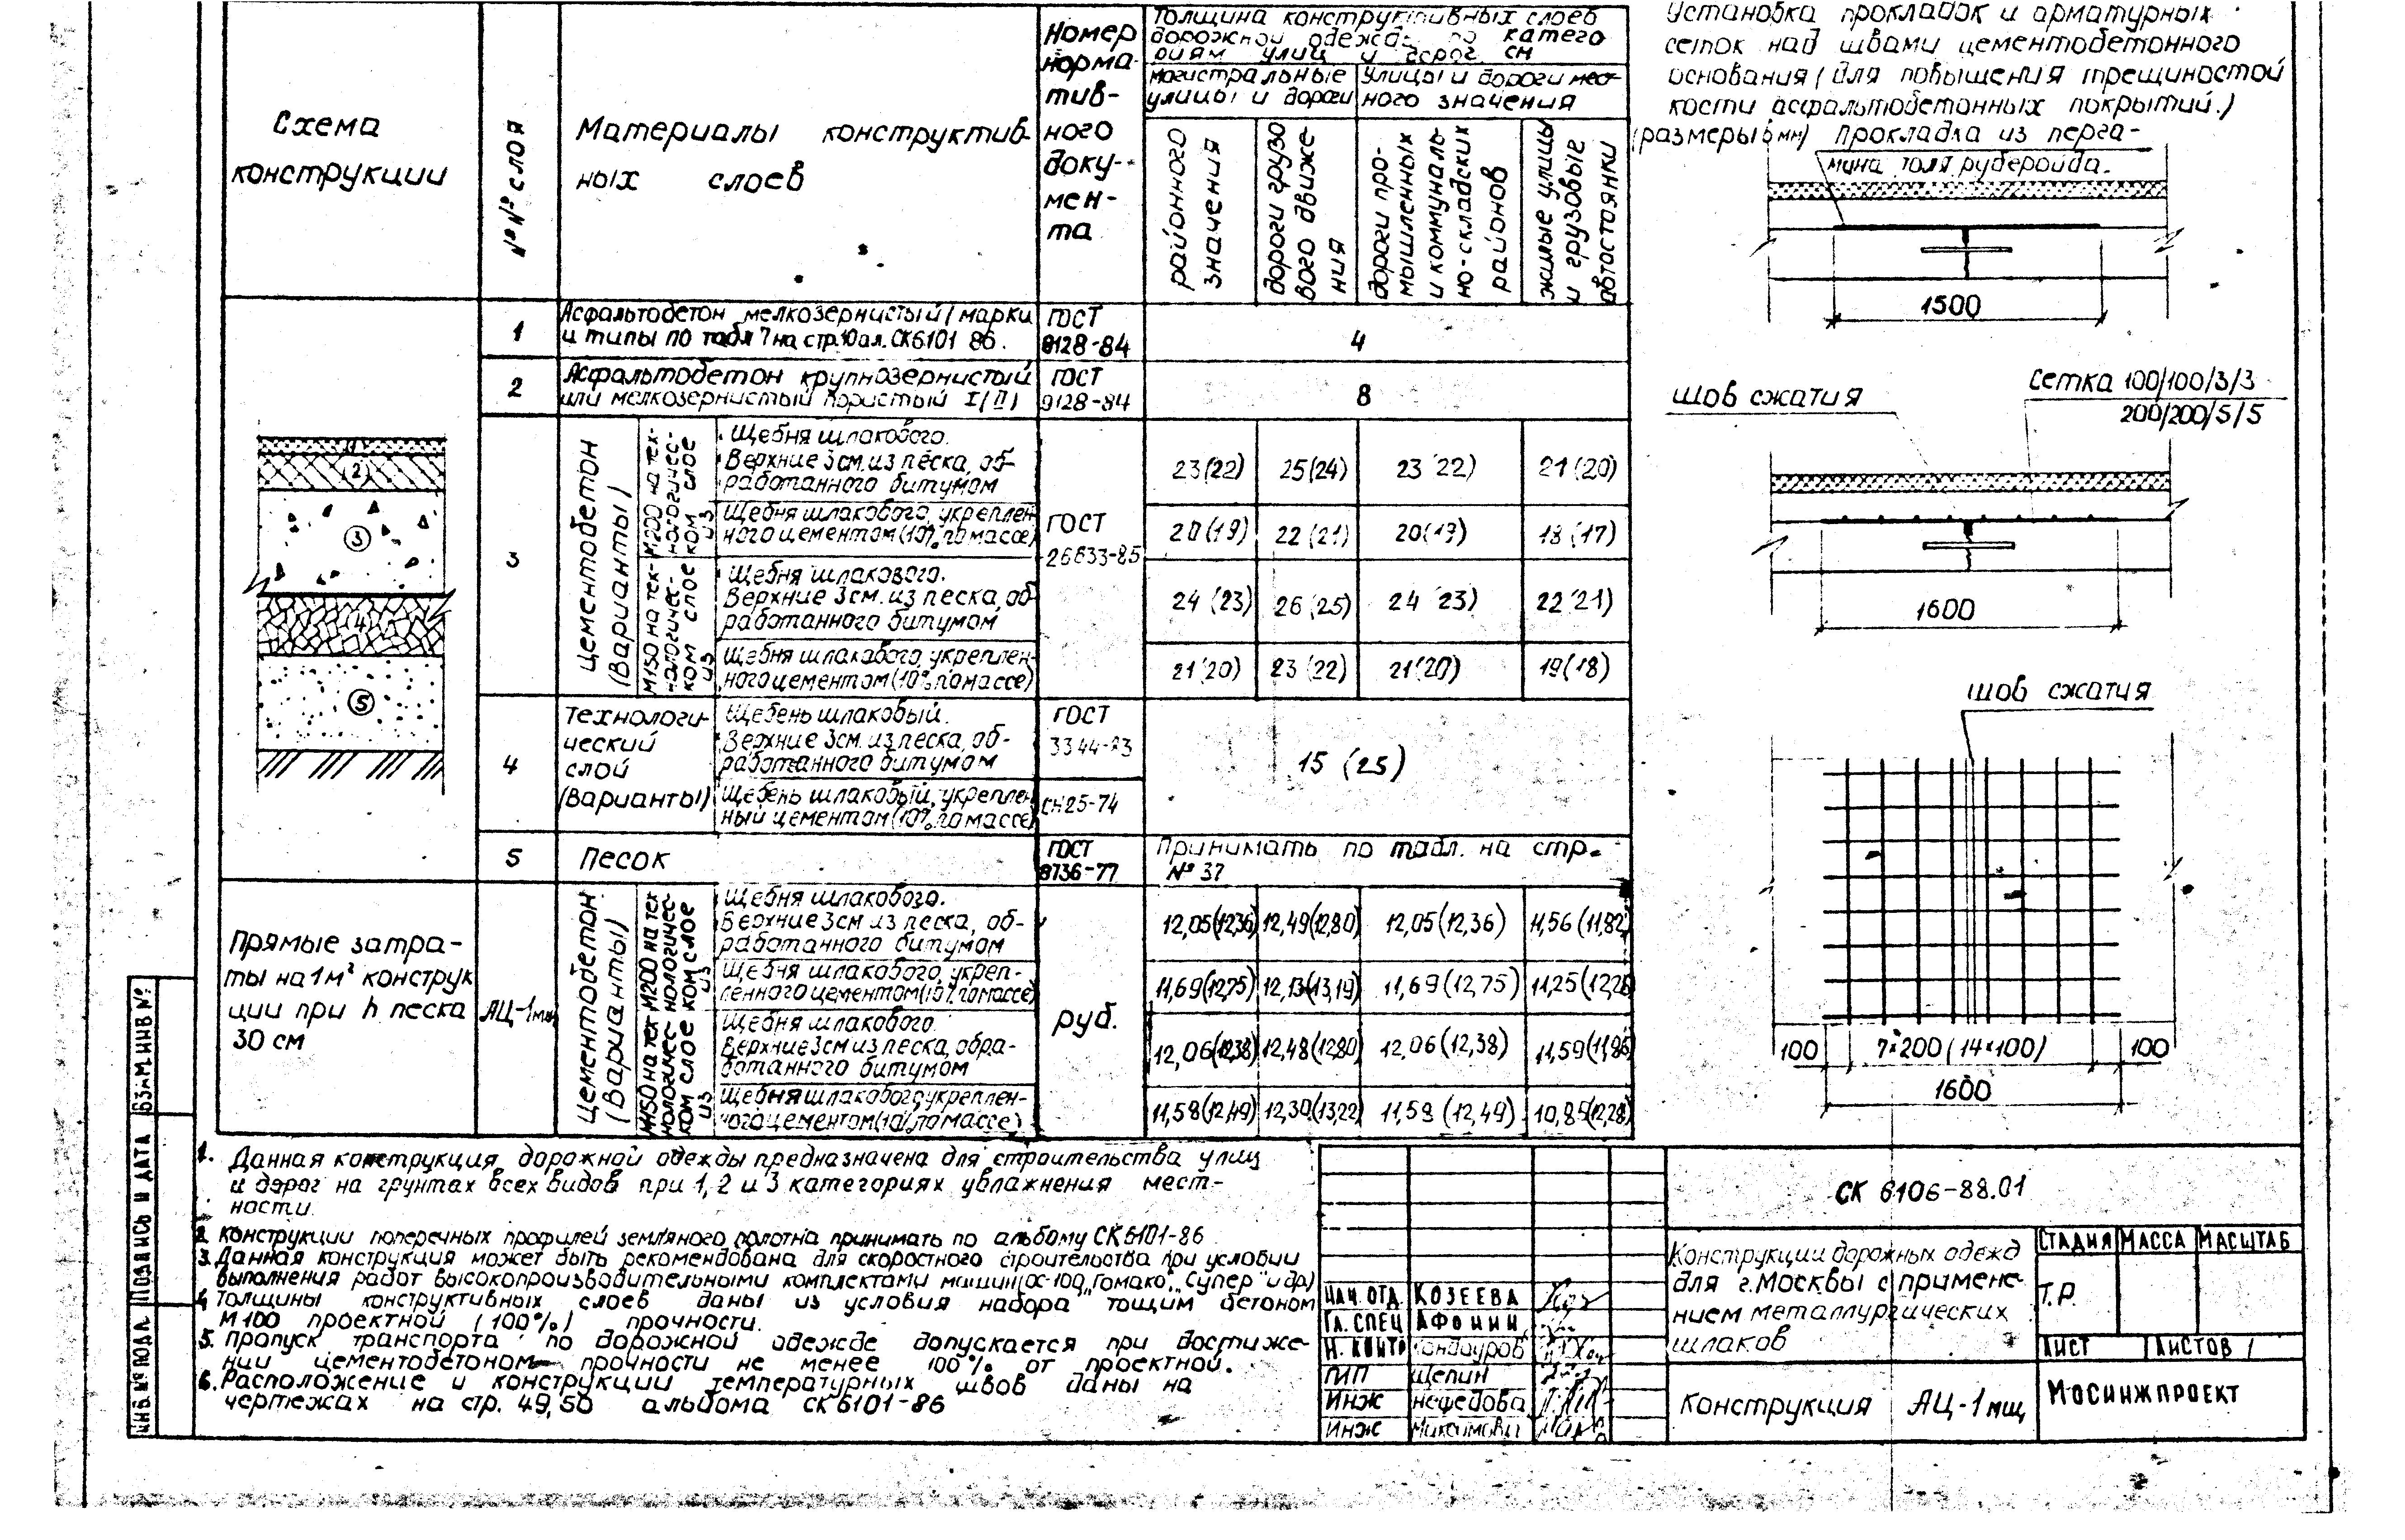 Схема
конструкции
№№ слоя
Материалы конструктив-
ных слоев
Номер
норма-
тив-
ного
доку-
мен-
та
Толщина конструктивных слоев
дорожной одежды по катего
риям улиц и дорог см
магистральные
улицы и дороги
Улицы и дороги мест-
ного значения
районного
значения
дороги грузо
вого движе-
ния
дороги про-
мышленных
и коммуналь-
но-складских
районов
жилые улицы
и грузовые
автостоянки
1
Асфальтобетон мелкозернистый (марки
и типы по табл 7 на стр. 10 ал. СК6101 86.
ГОСТ
9128-84
4
2
Асфальтобетон крупнозернистый
или мелкозернистый пористый I(II)
ГОСТ
9128-84
8
3
Цементобетон
(Варианты)
М200 на тех-
нологичес-
ком слое
из
Щебня шлакового.
Верхние 3см. из песка, об-
работанного битумом
23(22) 25(24) 23(22) 21(20)
Щебня шлакового, укреплен
ного цементом (10% по массе)
ГОСТ
26633-85
20(19) 22(21) 20(19) 18(17)
М150 на тех-
нологичес-
ком слое
из
Щебня шлакового.
Верхние 3см. из песка, об
работанного битумом
24(23) 26(25) 24(23) 22(21)
Щебня шлакового, укреплен-
ного цементом (10% по массе)
21(20) 23(22) 21(20) 19(18)
4
Технологи-
ческий
слой
(Варианты)
Щебень шлаковый.
Верхние 3см. из песка, об-
работанного битумом
ГОСТ
3344-83
15 (25)
Щебень шлаковый, укреплен
ный цементом (10% по массе)
СН25-74
5
Песок
ГОСТ
8736-77
Принимать по табл. на стр.
№ 37
1
2
3
4
5
Прямые затра-
ты на 1м² конструк
ции при h песка
30 см
АЦ-1мщ
Цементобетон
(Варианты)
М200 на тех
нологичес-
ком слое
из
Щебня шлакового.
Верхние 3см из песка, об-
работанного битумом
руб.
12,05(12,36) 12,49(12,80) 12,05(12,36) 11,56(11,82)
Щебня шлакового, укреп-
ленного цементом (10% по массе)
11,69(12,75) 12,13(13,19) 11,69(12,75)
М150 на тех
нологичес-
ком слое
из
Щебня шлакового.
Верхние 3см из песка, обра-
ботанного битумом
12,06(12,38) 12,48(12,80) 12,06(12,38) 11,59(11,86)
Щебня шлакового, укреплен-
ного цементом (10% по массе)
11,58(12,49) 12,30(13,22) 11,58(12,49) 10,85(12,28)
Установка прокладок и арматурных
сеток над швами цементобетонного
основания (для повышения трещиностой
кости асфальтобетонных покрытий.)
(размеры в мм) Прокладка из перга-
мина толя рубероида.
1500
шов сжатия
Сетка 100/100/3/3
200/200/5/5
1600
шов сжатия
100
7×200 (14×100)
100
1600
1. Данная конструкция дорожной одежды предназначена для строительства улиц
и дорог на грунтах всех видов при 1, 2 и 3 категориях увлажнения мест-
ности.
2 Конструкции поперечных профилей земляного полотна принимать по альбому СК6101-86
3. Данная конструкция может быть рекомендована для скоростного строительства при условии
выполнения работ высокопроизводительными комплектами машин (ДС-100, „Гомако", „Супер" и др)
4 Толщины конструктивных слоев даны из условия набора тощим бетоном
М100 проектной (100%) прочности.
5. Пропуск транспорта по дорожной одежде допускается при достиже-
нии цементобетоном прочности не менее 100% от проектной.
6. Расположение и конструкции температурных швов даны на
чертежах на стр. 49, 50 альбома СК6101-86
Взам инв №
Подпись и дата
Инв № подл
Нач. отд. Козеева
Гл. спец Афонин
Н. контр Кондауров
ГИП Щепин
Инж Нефедова
Инж
СК 6106-88.01
Конструкции дорожных одежд
для г. Москвы с примене-
нием металлургических
шлаков
Стадия Масса Масштаб
Т.Р.
Лист Листов 1
Конструкция АЦ-1мщ
Мосинжпроект